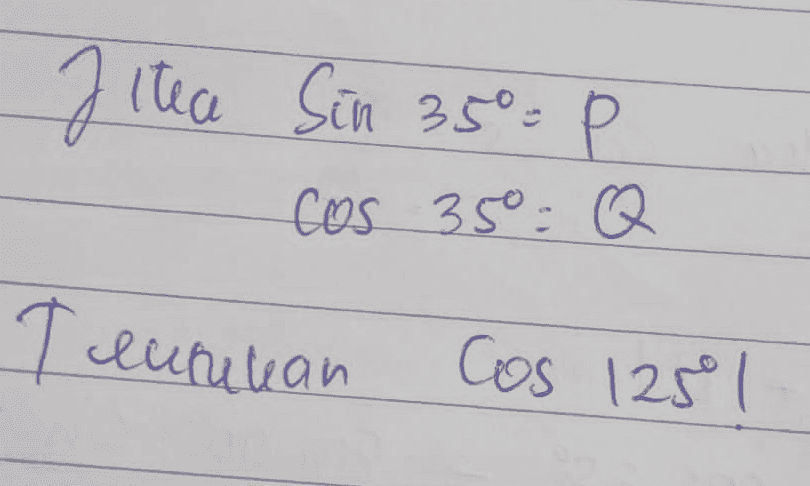 Jika Sin 35° = P
Cos 35° = Q
Tentukan Cos 125°!